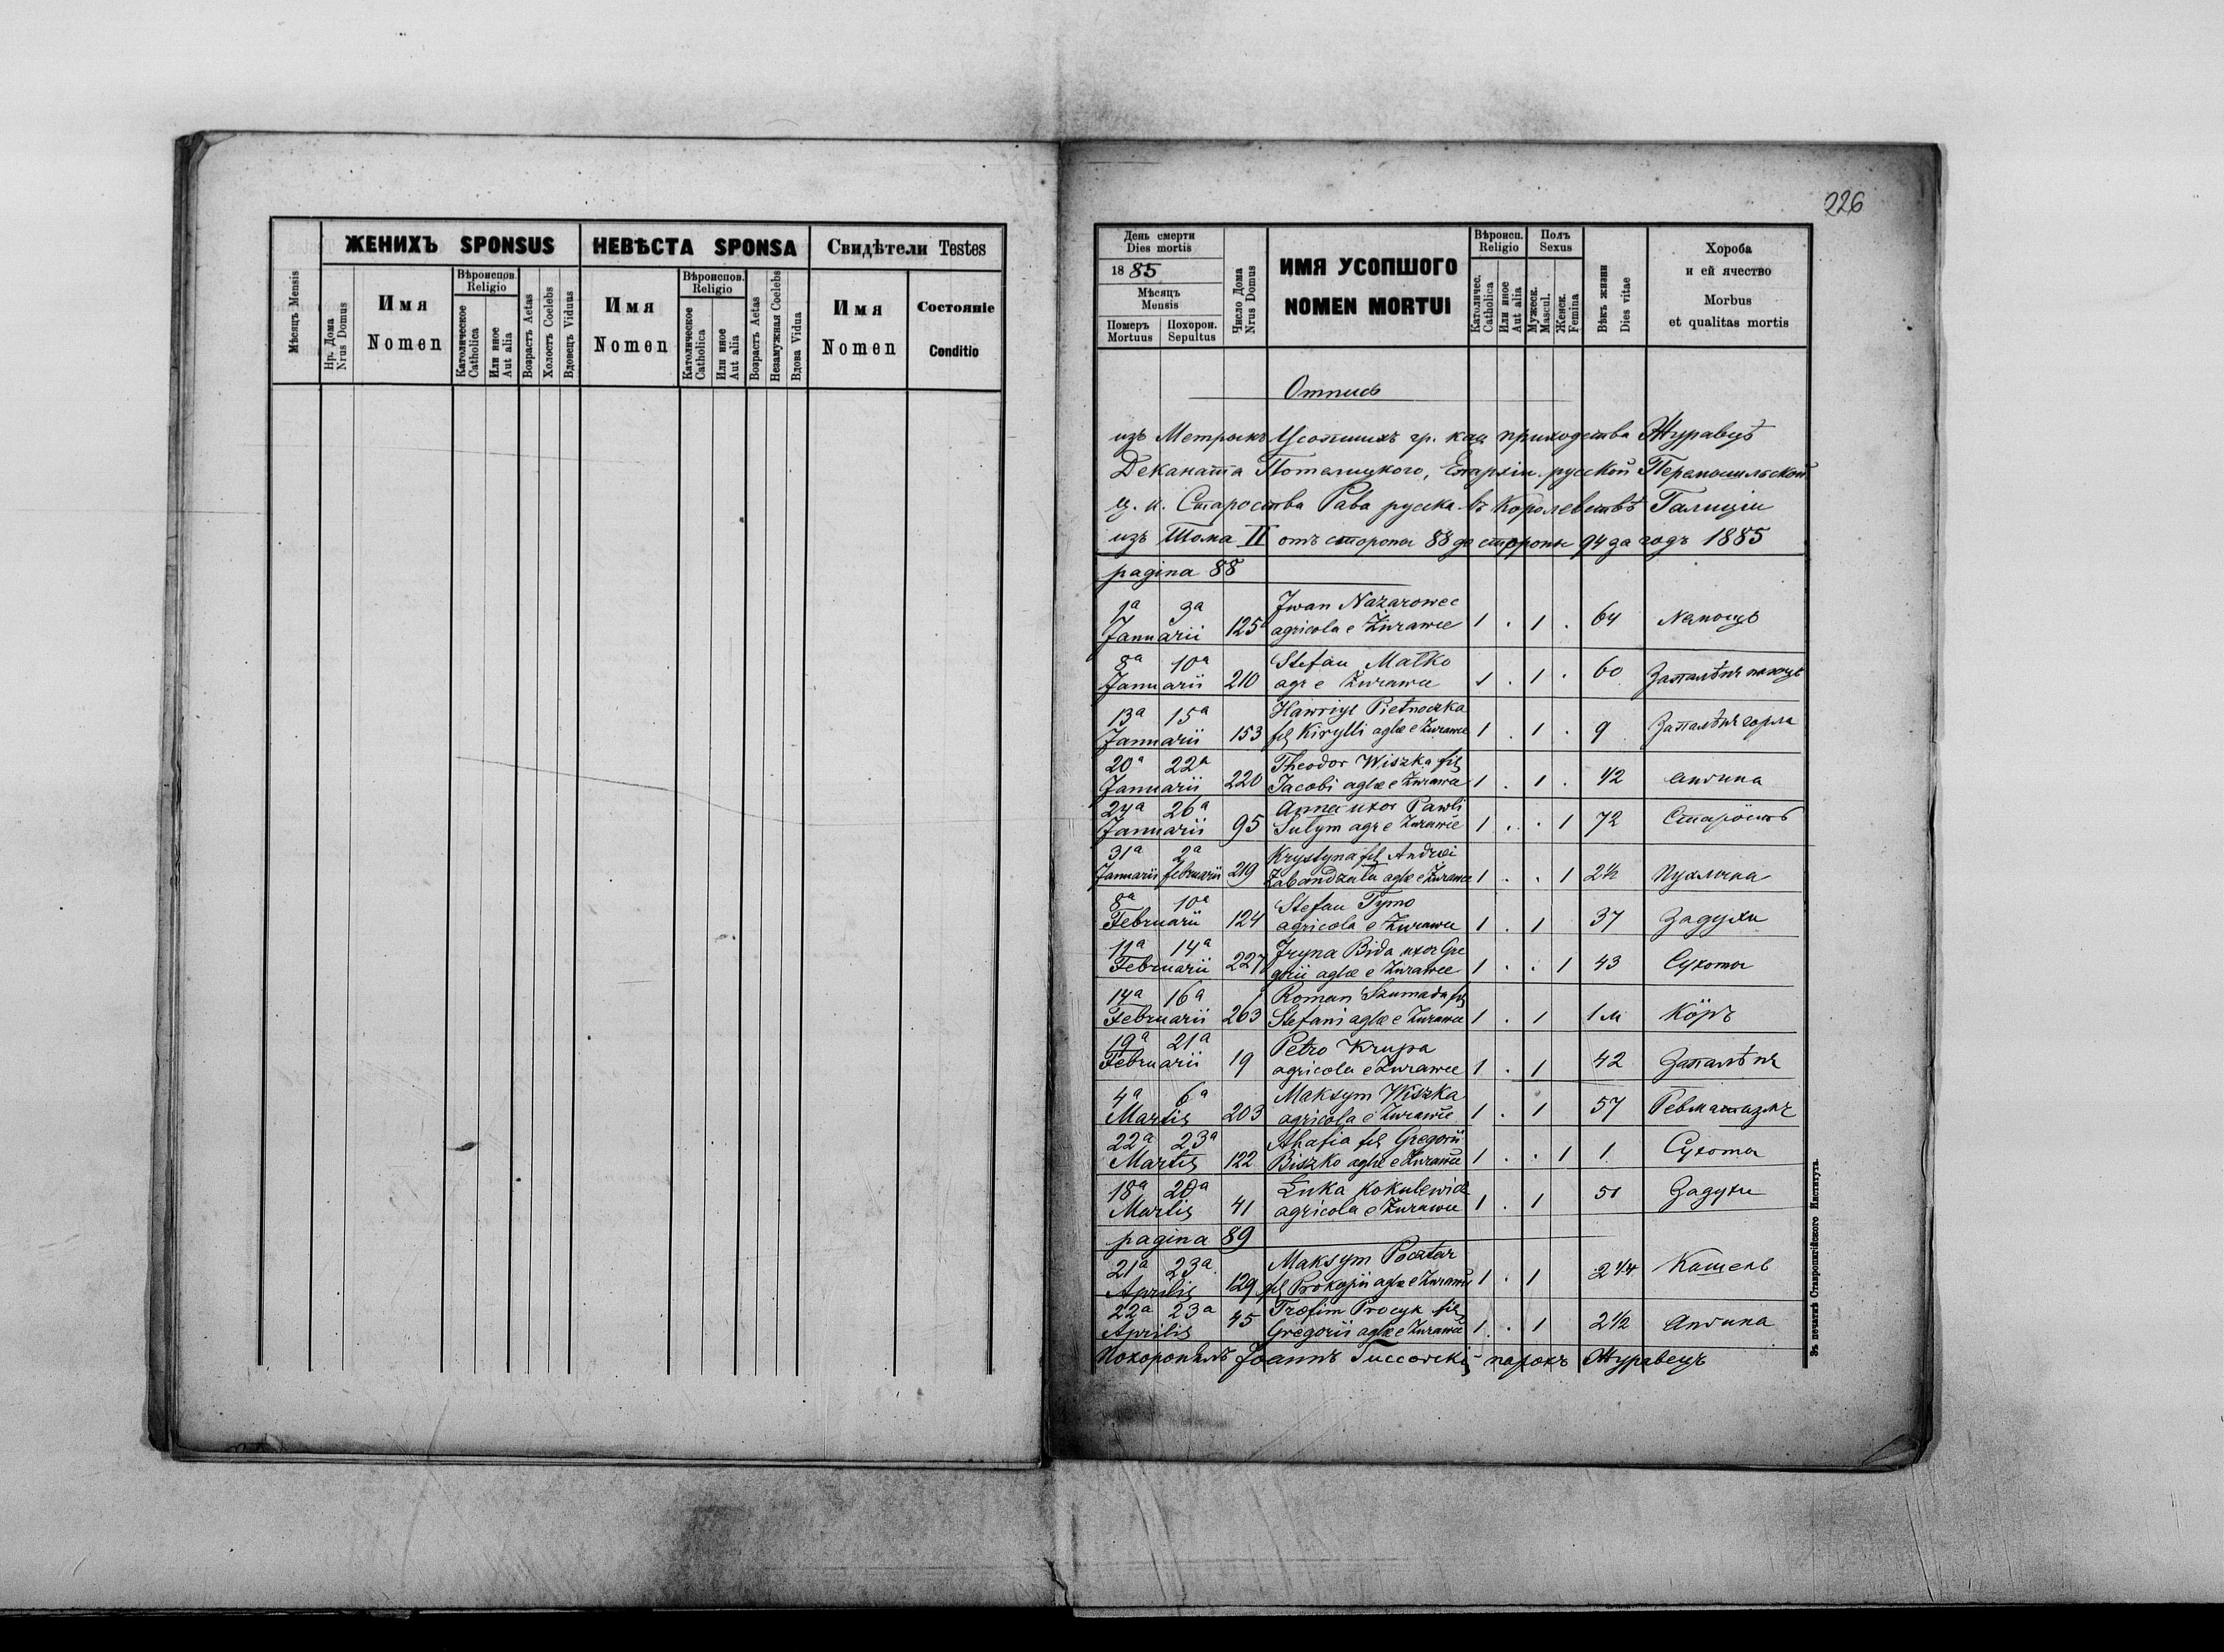 ЖЕНИХЪ SPONSUS
НЕВѢСТА SPONSA
Свидѣтели Testes
Мѣсяцъ Mensis
Нр. Дома Nrus Domus
Имя
Nomen
Вѣроиспов.
Religio
Католическое Catholica
Или иное Aut alia
Возрастъ Aetas
Холостъ Coelebs
Вдовецъ Viduus
Имя
Nomen
Вѣроиспов.
Religio
Католическое Catholica
Или иное Aut alia
Возрастъ Aetas
Незамужная Coelebs
Вдова Vidua
Имя
Nomen
Состояніе
Conditio
226
День смерти
Dies mortis
1885
Мѣсяцъ
Mensis
Померъ Mortuus
Похорон. Sepultus
Число Дома Nrus Domus
ИМЯ УСОПШОГО
NOMEN MORTUI
Вѣроисп.
Religio
Католичес. Catholica
Или иное Aut alia
Полъ
Sexus
Мужеск. Mascul.
Женск. Femina
Вѣкъ жизни
Dies vitae
Хороба
и ей ячество
Morbus
et qualitas mortis
Отпись
изъ Метрыкъ Усопшихъ гр. кат приходства Журавцѣ
Деканата Потелицкого, Епархіи русской Перемышльской
ц. к. Староства Рава руска въ Королевствѣ Галиціи
изъ Тома II отъ стороны 88 до стороны 94 за годъ 1885
pagina 88
1a 3a Iwan Nazarowec
Januarii 125 agricola e Żurawce 1 . 1 . 64 Немощь
8a 10a Stefan Małko
Januarii 210 agr e Żurawce 1 . 1 . 60
13a 15a Hawriył Pietnoczka
Januarii 153 fil Kirylli aglae e Żurawce 1 . 1 . 9 Запалѣнє горла
20a 22a Theodor Wiszka fil
Januarii 220 Jacobi aglae e Żurawce 1 . 1 . 42 Ангина
24a 26a Anna uxor Pawli
Januarii 95 Sułym agr e Żurawce 1 . . 1 72 Старость
31a 2a Krystyna fil Andrei
Januarii februarii 219 aglae e Żurawce 1 . . 1 2½ Пухлина
8a 10a Stefan Tymo
Februarii 124 agricola e Żurawce 1 . 1 37 Задухи
11a 14a Iryna Bida uxor Gre
Februarii 227 gorii aglae e Żurawce 1 . . 1 43 Сухоты
14a 16a Roman Szumada fil
Februarii 263 Stefani aglae e Żurawce 1 . 1 1 м Кôръ
19a 21a Petro Krupa
Februarii 19 agricola e Żurawce 1 . 1 42 Запалѣнє
4a 6a Maksym Wiszka
Martis 203 agricola e Żurawce 1 . 1 57 Ревматизмъ
22a 23a Ahafia fil Gregorii
Martis 122 Biszko aglae e Żurawce 1 . . 1 1 Сухоты
18a 20a Łuka Kokulewicz
Martis 41 agricola e Żurawce 1 . 1 51 Задухи
pagina 89
21a 23a Maksym Pocztar
Aprilis 129 fil Prokopii aglae e Żurawce 1 . 1 2 1/4 Кашель
22a 23a Trofim Procyk fil
Aprilis 45 Gregorii aglae e Żurawce 1 . 1 2 1/2 Ангина
Похоронилъ парохъ Журавецъ
Зъ печатнѣ Ставропигійского Института.